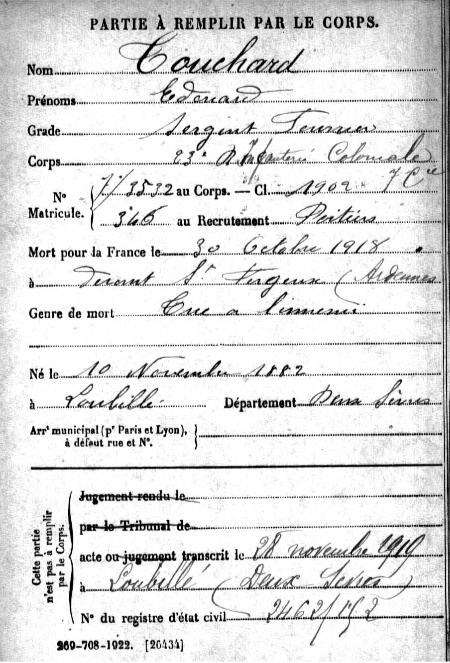 PARTIE À REMPLIR PAR LE CORPS.
Nom Touchard
Prénoms Edouard
Grade Sergent Fourrier
Corps 23e R Infanterie Coloniale
7 Cie
No Matricule. 3532 au Corps. — Cl. 1902
346 au Recrutement Poitiers
Mort pour la France le 30 Octobre 1918
à devant St Fergeux (Ardennes
Genre de mort Tué à l'ennemi
Né le 10 Novembre 1882
à Loubillé Département Deux Sèvres
Arrt municipal (pr Paris et Lyon), à défaut rue et No.
Cette partie n'est pas à remplir par le Corps.
Jugement rendu le
par le Tribunal de
acte ou jugement transcrit le 28 novembre 1919
à Loubillé (Deux Sèvres)
No du registre d'état civil 2462/
269-708-1922. [26434]